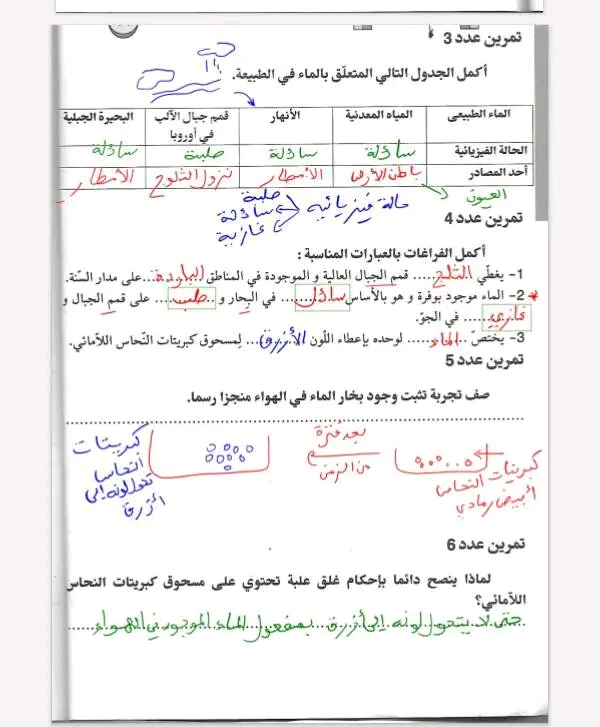 تمرين عدد 3
أكمل الجدول التالي المتعلّق بالماء في الطبيعة.
الماء الطبيعي | المياه المعدنية | الأنهار | قمم جبال الآلب في أوروبا | البحيرة الجبلية
الحالة الفيزيائية | سائلة | سائلة | صلبة | سائلة
أحد المصادر | باطن الأرض | الأمطار | نزول الثلوج | الأمطار
العيون
حالة فيزيائية
صلبة
سائلة
غازية
تمرين عدد 4
أكمل الفراغات بالعبارات المناسبة :
1- يغطّي الثلج قمم الجبال العالية و الموجودة في المناطق الباردة على مدار السّنة.
2- الماء موجود بوفرة و هو بالأساس سائل في البحار و صلب على قمم الجبال و
غازي في الجوّ.
3- يختصّ الماء لوحده بإعطاء اللّون الأزرق لمسحوق كبريتات النّحاس اللاّمائي.
تمرين عدد 5
صف تجربة تثبت وجود بخار الماء في الهواء منجزا رسما.
كبريتات النحاس أبيض رمادي
بعد فترة
من الزمن
كبريتات
النحاس
تحول لونه إلى
أزرق
تمرين عدد 6
لماذا ينصح دائما بإحكام غلق علبة تحتوي على مسحوق كبريتات النحاس
اللاّمائي؟
حتى لا يتحول لونه إلى أزرق بمفعول الماء الموجود في الهواء